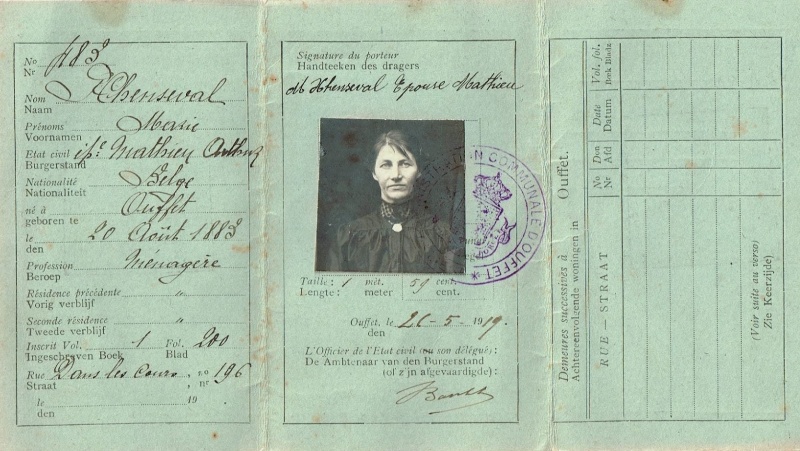 No 483
Nr
Nom Xhenseval
Naam
Prénoms Marie
Voornamen
Etat civil épse Mathieu Arthur
Burgerstand
Nationalité Belge
Nationaliteit
né à Ouffet
geboren te
le 20 Août 1883
den
Profession Ménagère
Beroep
Résidence précédente "
Vorig verblijf
Seconde résidence "
Tweede verblijf
Inscrit Vol. 1 Fol. 200
Ingeschreven Boek Blad
Rue Dans les Cours no 196
Straat nr
le 19
den
Signature du porteur
Handteeken des dragers
M Xhenseval Epouse Mathieu
COMMUNALE D'OUFFET
Taille : 1 mèt. 59 cent.
Lengte : meter cent.
Ouffet, le 26-5-1919.
den
L'Officier de l'Etat civil (ou son délégué) :
De Ambtenaar van den Burgerstand
(of z'jn afgevaardigde) :
Demeures successives à Ouffet.
Achtereenvolgende woningen in
RUE — STRAAT
No Nr
Don Afd
Date Datum
Vol. fol. Boek Bladz
(Voir suite au verso)
Zie Keerzijde)